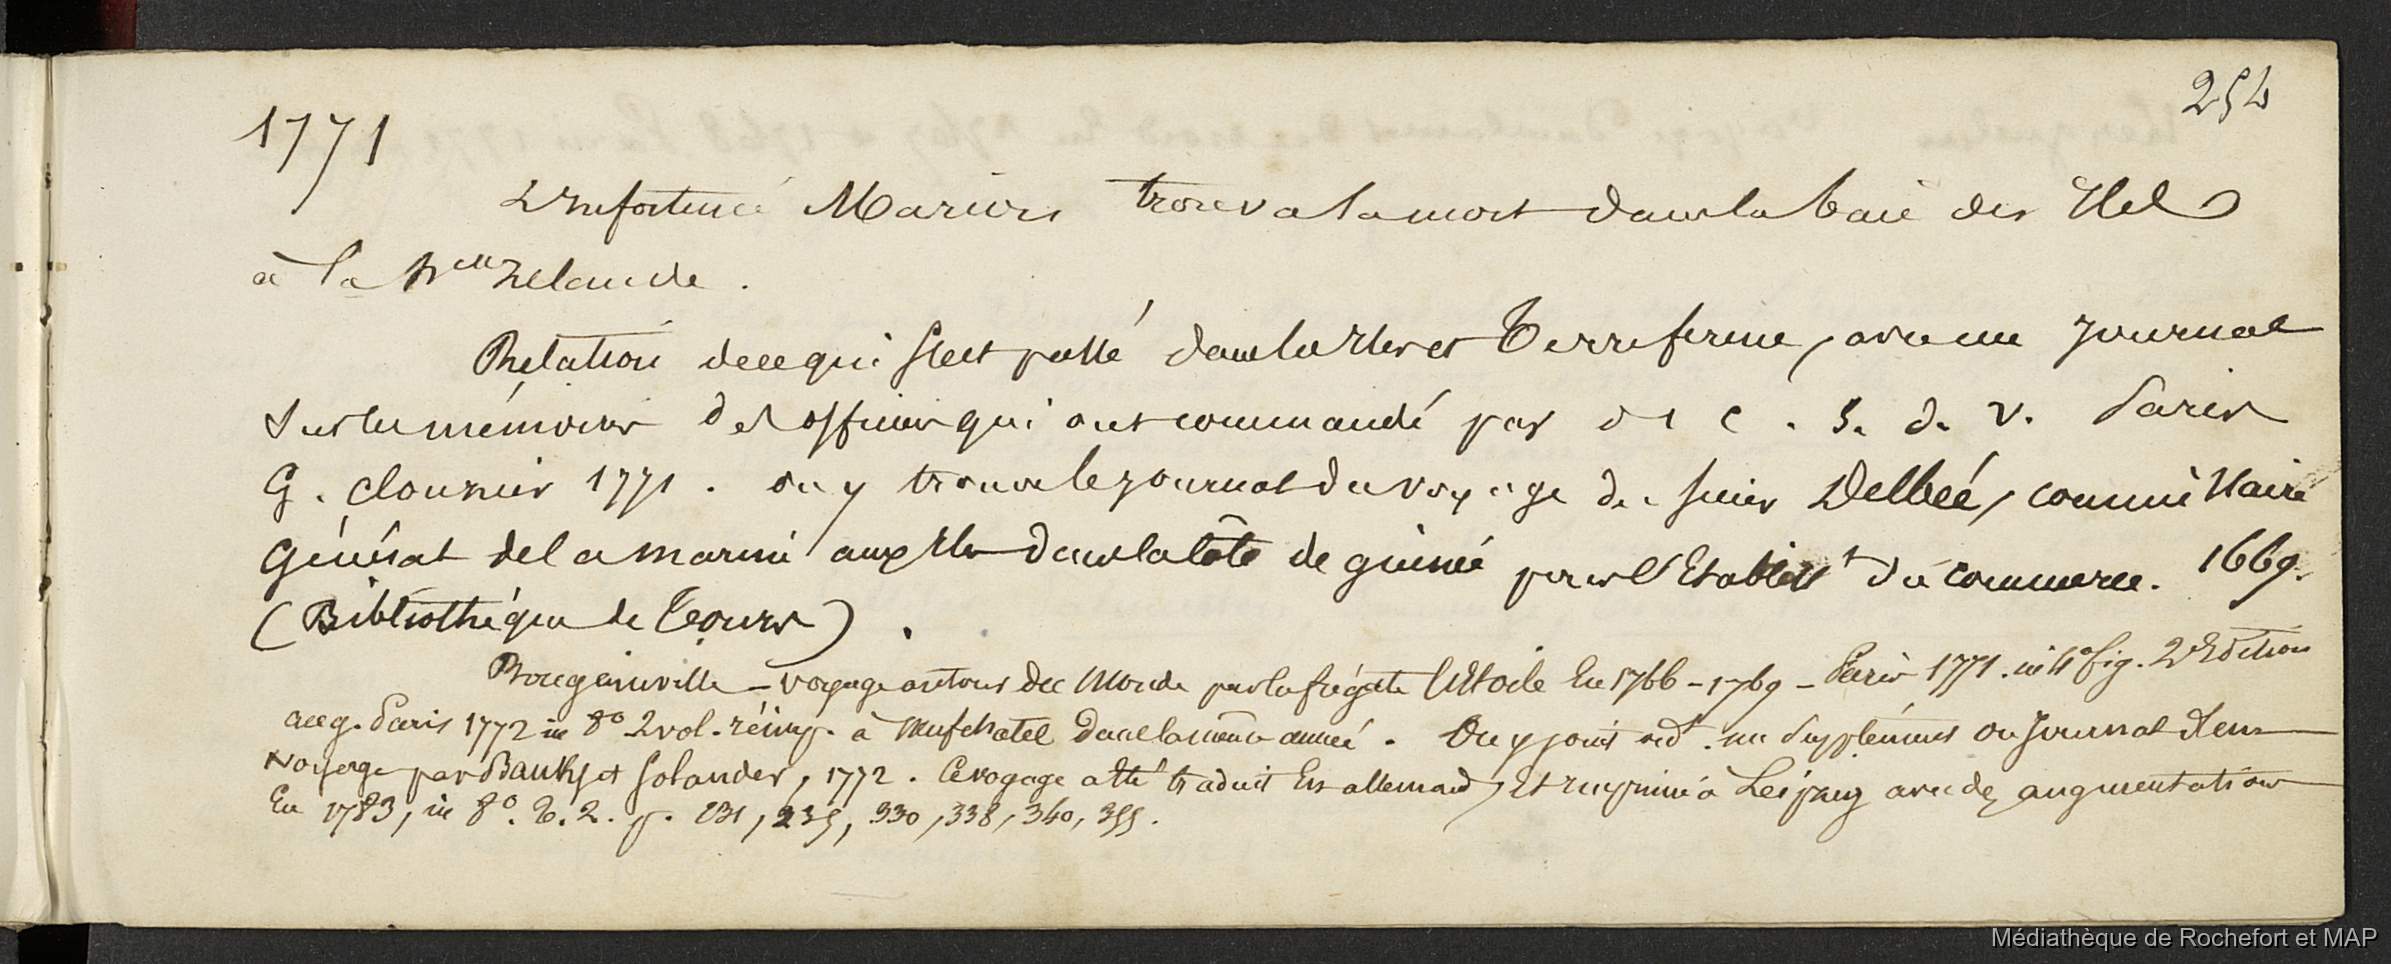 254
1771
L'infortuné Marion trouva la mort dans la baie des Iles
à la Nlle Zelande.
Relation de ce qui s'est passé dans les Iles et Terre ferme, avec un Journal
sur les mémoires des officiers qui ont commandé par J C. S. d. V. Paris
G. Clousier 1771. on y trouve le journal du voyage du sieur Delbée, commissaire
Général de la marine aux Iles dans la côte de guinée pour l'Etabliss.t du commerce. 1669.
(Bibliothéque de Tours).
Bougainville – voyage autour du Monde par la frégate l'Etoile En 1766-1769 – Paris 1771. in 4° fig. 2e Edition
aug. Paris 1772 in 8° 2 vol. réimp. à Neufchatel dans la même année. On y joint un supplément ou Journal d'un
voyage par Banks et Solander, 1772. Ce voyage a été traduit En allemand, Et imprimé à Leipzig avec des augmentations
En 1783, in 8°. T. 2. p. 235, 330, 338, 340, 355.
Médiathèque de Rochefort et MAP